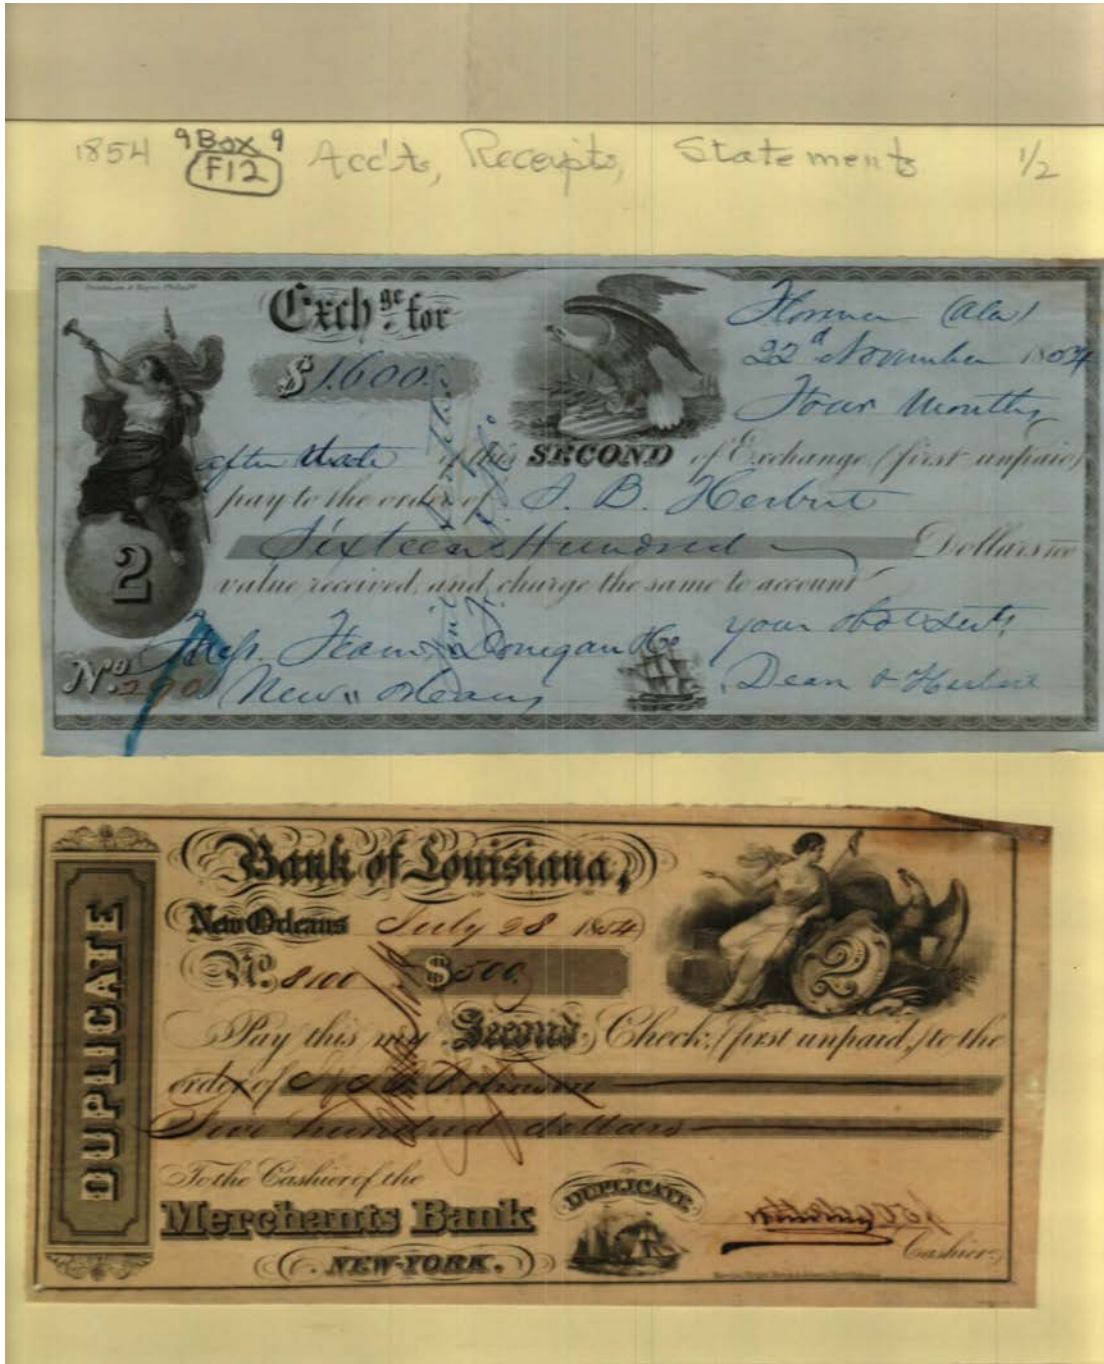 1854 9 Box 9 Acc'ts, Receipts, Statements 1/2
F12
Exchge. for
$1.600.
Florence (Ala)
22d November 1854
Four Months
after date of this SECOND of Exchange (first unpaid)
pay to the order of J. B. Herbert
Sixteen Hundred Dollars
value received, and charge the same to account
2
Mess. Fearn Donegan & Co your obt Servts
No. 290 New Orleans Dean & Herbert
DUPLICATE
Bank of Louisiana,
New Orleans July 28 1854
No. 8100 $500.
2
Pay this my Second Check, (first unpaid,) to the
order of
Five hundred dollars
To the Cashier of the
Merchants Bank
NEW-YORK.
DUPLICATE
Cashier